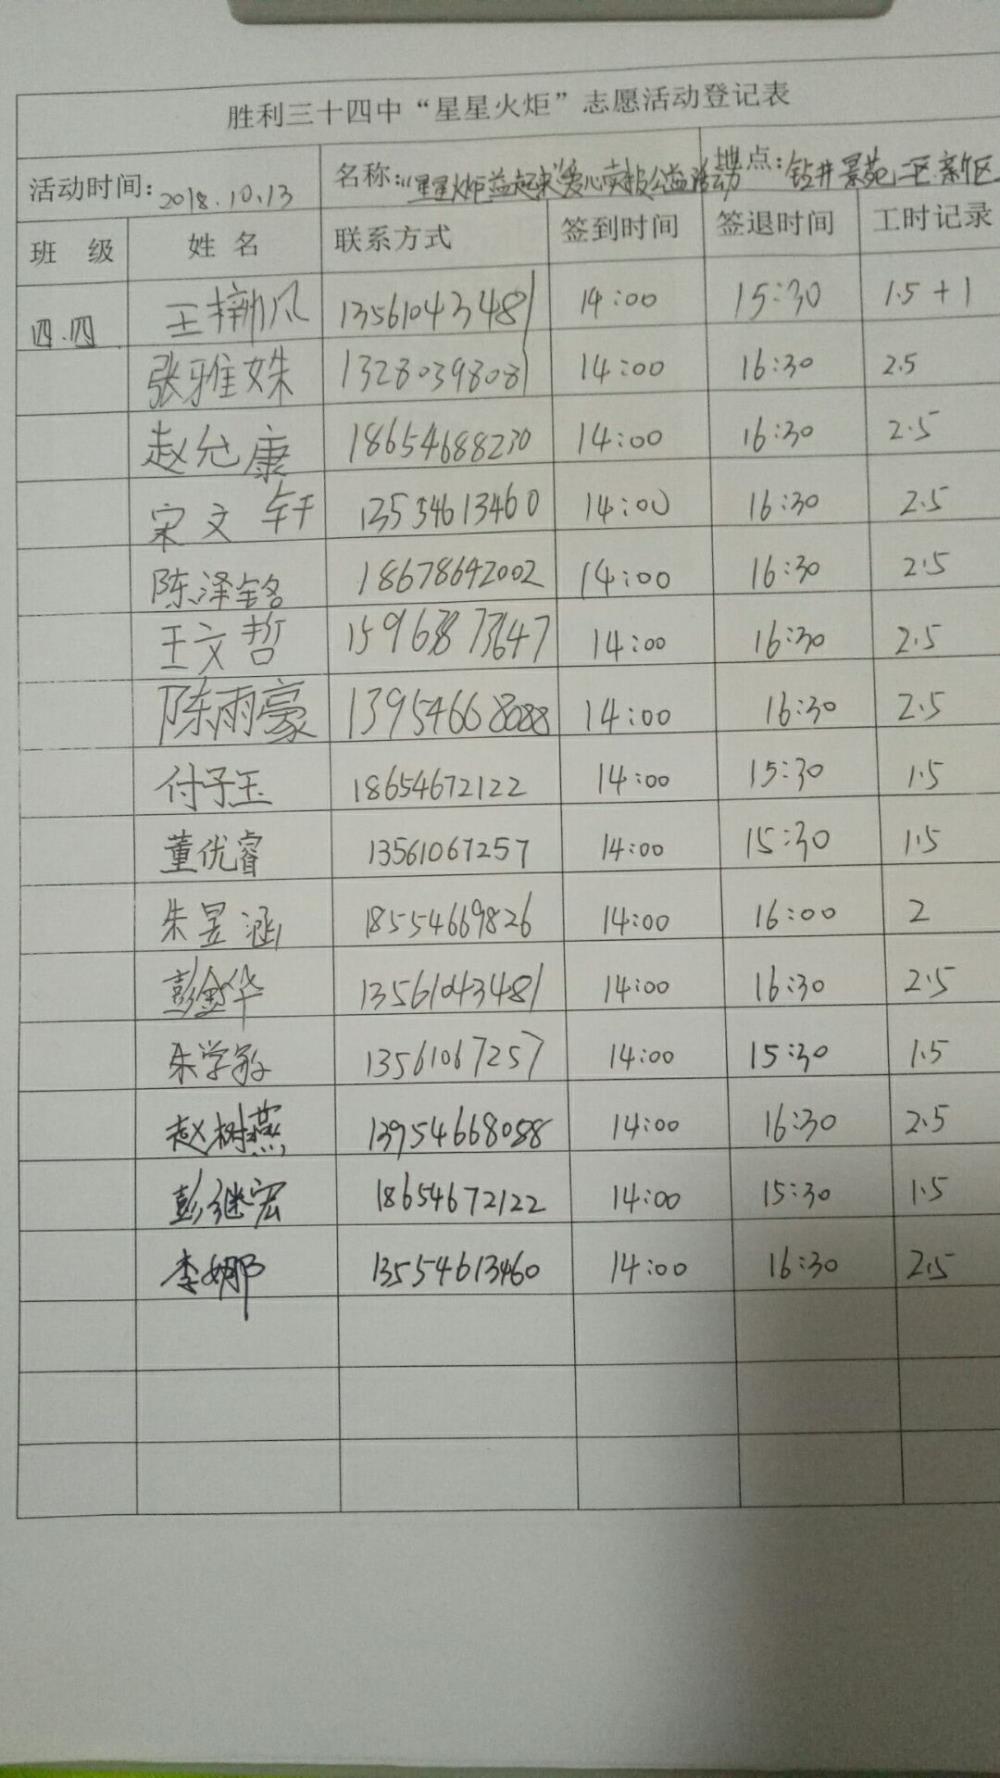 胜利三十四中“星星火炬”志愿活动登记表
活动时间：2018.10.13 名称：“星星火炬益起来”爱心卖报公益活动 地点：钻井景苑二区.新区
班 级 姓 名 联系方式 签到时间 签退时间 工时记录
四.四 王梓帆 13561043481 14:00 15:30 1.5+1
张雅姝 13280398081 14:00 16:30 2.5
赵允康 18654688230 14:00 16:30 2.5
宋文轩 13554613460 14:00 16:30 2.5
陈泽铭 18678642002 14:00 16:30 2.5
王文哲 14:00 16:30 2.5
陈雨豪 13954668088 14:00 16:30 2.5
付子玉 18654672122 14:00 15:30 1.5
董优睿 13561067257 14:00 15:30 1.5
朱昱涵 18554669826 14:00 16:00 2
彭金华 13561043481 14:00 16:30 2.5
朱学敏 13561067257 14:00 15:30 1.5
赵树燕 13954668088 14:00 16:30 2.5
彭继宏 18654672122 14:00 15:30 1.5
李娜 13554613460 14:00 16:30 2.5